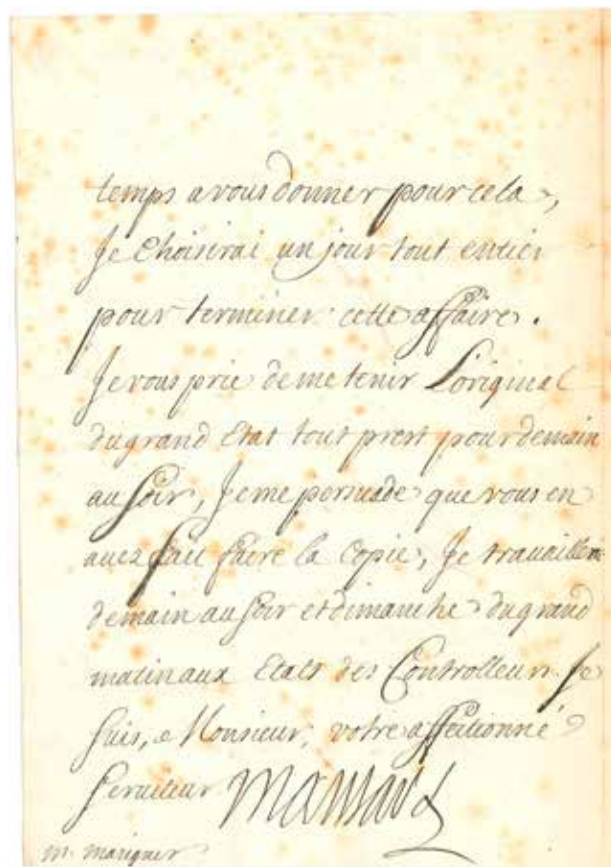 temps a vous donner pour cela,
Je Choisirai un jour tout entier
pour terminer cette affaire.
Je vous prie de me tenir L'original
du grand Etat tout prest pour demain
au soir, Je me persuade que vous en
avez fait faire la Copie, Je travaillerai
demain au soir et dimanche du grand
matin aux Etats des Controlleurs. Je
suis, Monsieur, votre affectionné
serviteur Mansard
m. marigner